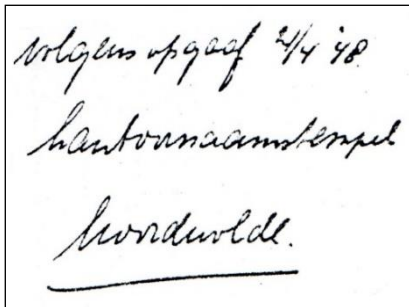 volgens opgaaf 2/4 '48.
kantoornaamstempel
Noordwolde.